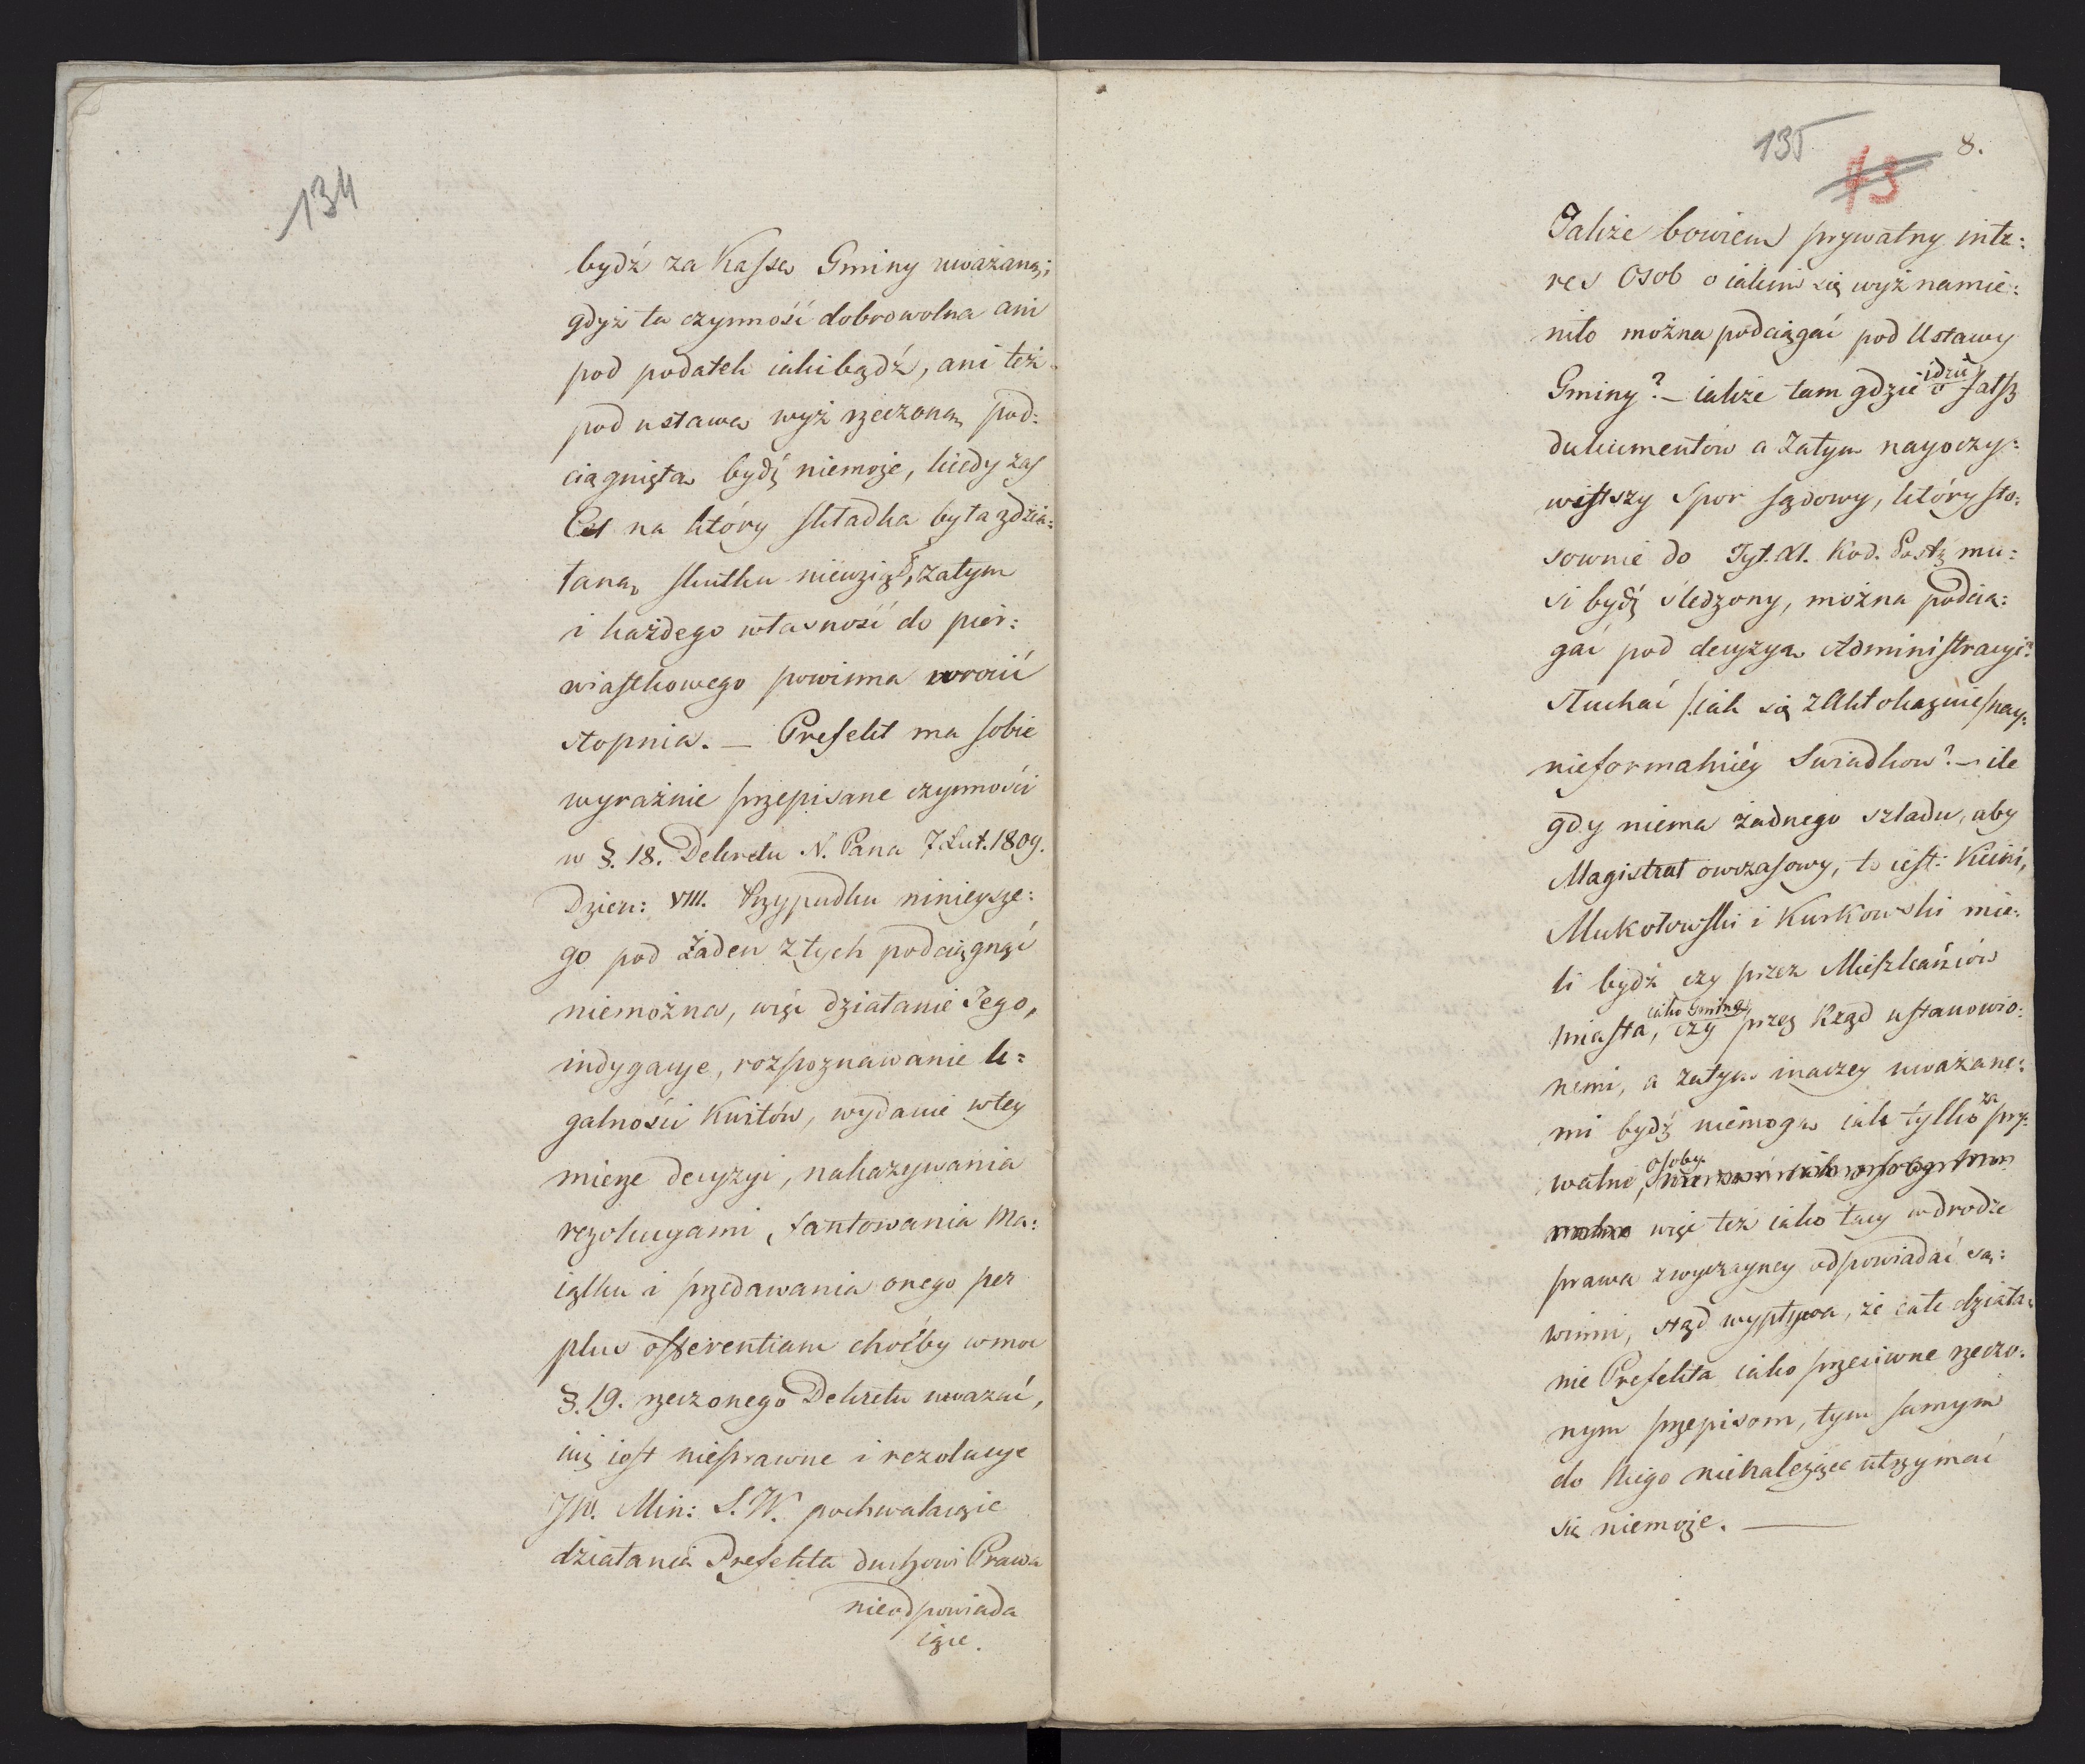 134
bydź za Kassę Gminy uważaną;
gdyż ta czynność dobrowolna ani
pod podatek iakibądź, ani też
pod ustawę wyż rzeczoną pod:
ciągnięta bydź niemoże, kiedy zaś
Cel na który składka była zdzia:
łaną skutku niewziął, zatym
i każdego własność do pier:
wiastkowego powinna wrócić
stopnia. — Prefekt ma sobie
wyraźnie przepisane czynności
w §. 18. Dekretu N. Pana 7 Lut. 1809.
Dzien: VIII. Przypadku ninieysze:
go pod żaden z tych podciągnąć
niemożna, więc działanie Jego,
indygacye, rozpoznawanie le:
galności Kwitów, wydanie w tey
mierze decyzyi, nakazywania
rezolucyami, fantowania Ma:
iątku i przedawania onego per
plus offerentiam choćby w moc
§. 19. rzeczonego Dekretu uważać,
iuż iest niesprawne i rezolucye
JW. Min: S. W. pochwalaiące
działania Prefekta duchowi Prawa
nieodpowiada
iące.
135
43
8.
Jakże bowiem prywatny inte:
res Osob o iakim się wyż namie:
niło można podciągać pod Ustawy
Gminy? — iakże tam gdzie idzie o fałsz
dukumentów a zatym nayoczy:
wistszy Spor sądowy, który sto:
sownie do Tyt. XI. Kod. Postę mu:
si bydź śledzony, można podcią:
gać pod decyzyą Administracyi?
słuchać /: iak się z Akt okazuie / nay:
nieformalniéy Swiadkow? — ile
gdy niema żadnego szladu, aby
Magistrat owczasowy, to iest:
Mukołowski i Kurkowski mie:
li bydź czy przez Mieszkańców
miasta, iako Gminę, czy przez Rząd ustanowio:
nemi, a zatym inaczey uważane:
mi bydź niemogą iak tylko za pry:
watne, osoby
więc też iako tacy w drodze
prawa zwyczayney odpowiadać są:
winni, stąd wypływa, że całe działa:
nie Prefekta iako przeciwne rzeczo:
nym przepisom, tym samym
do Niego nienależące utrzymać
się niemoże. —